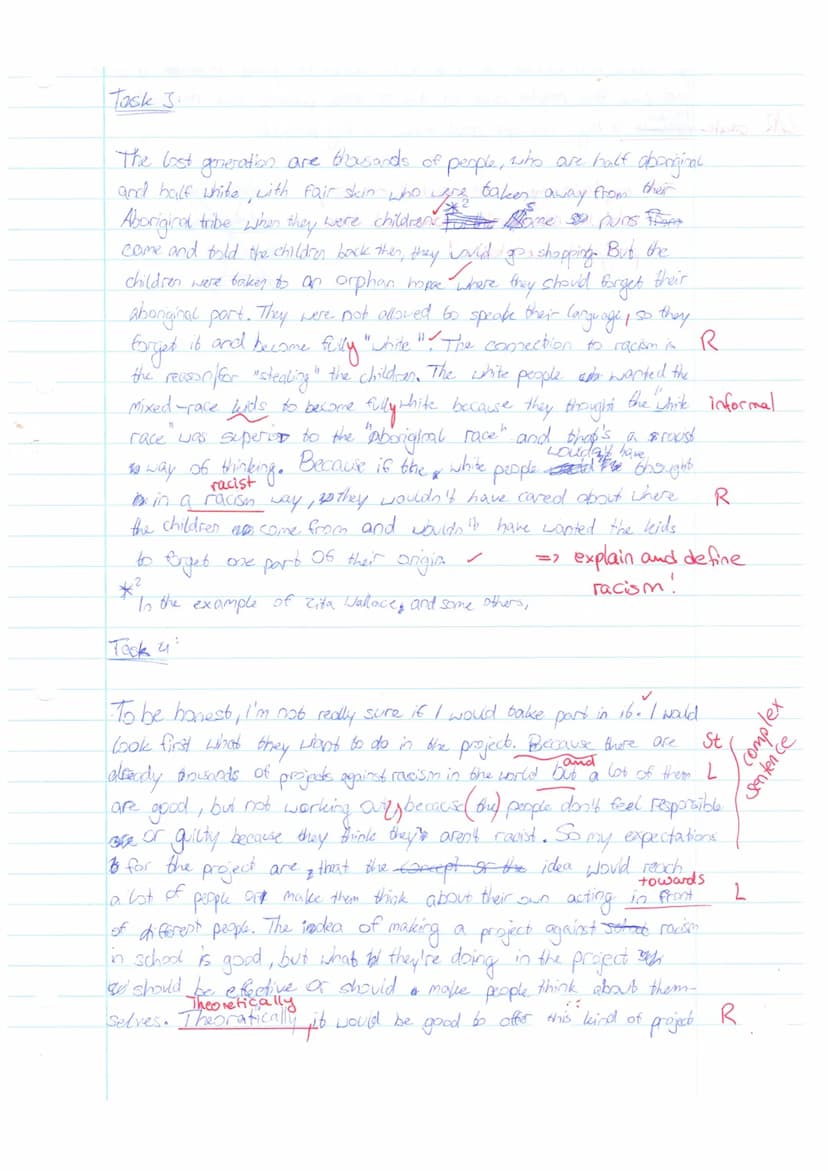 Task 3:
The lost generation are thousands of people, who are half aboriginal
and half white, with fair skin who were taken away from their
Aboriginal tribe when they were children. *² Some nuns
came and told the children back then, they would go shopping. But the
children were taken to an orphan home where they should forget their
aboriginal part. They were not allowed to speak their language, so they
forget it and become fully "white". The connection to racism is R
the reason for "stealing" the children. The white people wanted the
mixed-race kids to become fully white because they thought the "white informal
race" was superior to the "aboriginal race" and that's a racist
way of thinking. Because if the white people wouldn't have thought
racist
in a racism way, they wouldn't have cared about where R
the children come from and wouldn't have wanted the kids
to forget one part of their origin. => explain and define
racism!
*² In the example of Zita Wallace, and some others,
Task 4:
To be honest, I'm not really sure if I would take part in it. I would
look first what they want to do in the project. Because there are St
complex sentence
and
already thousands of projects against racism in the world but a lot of them L
are good, but not working out, because (the) people don't feel responsible
or guilty because they think they aren't racist. So my expectations
for the project are, that the concept or the idea would reach
towards
a lot of people or make them think about their own acting in front L
of different people. The idea of making a project against racism
in school is good, but what they're doing in the project
should be effective or should make people think about them-
Theoretically
selves. Theoratically, it would be good to offer this kind of project R